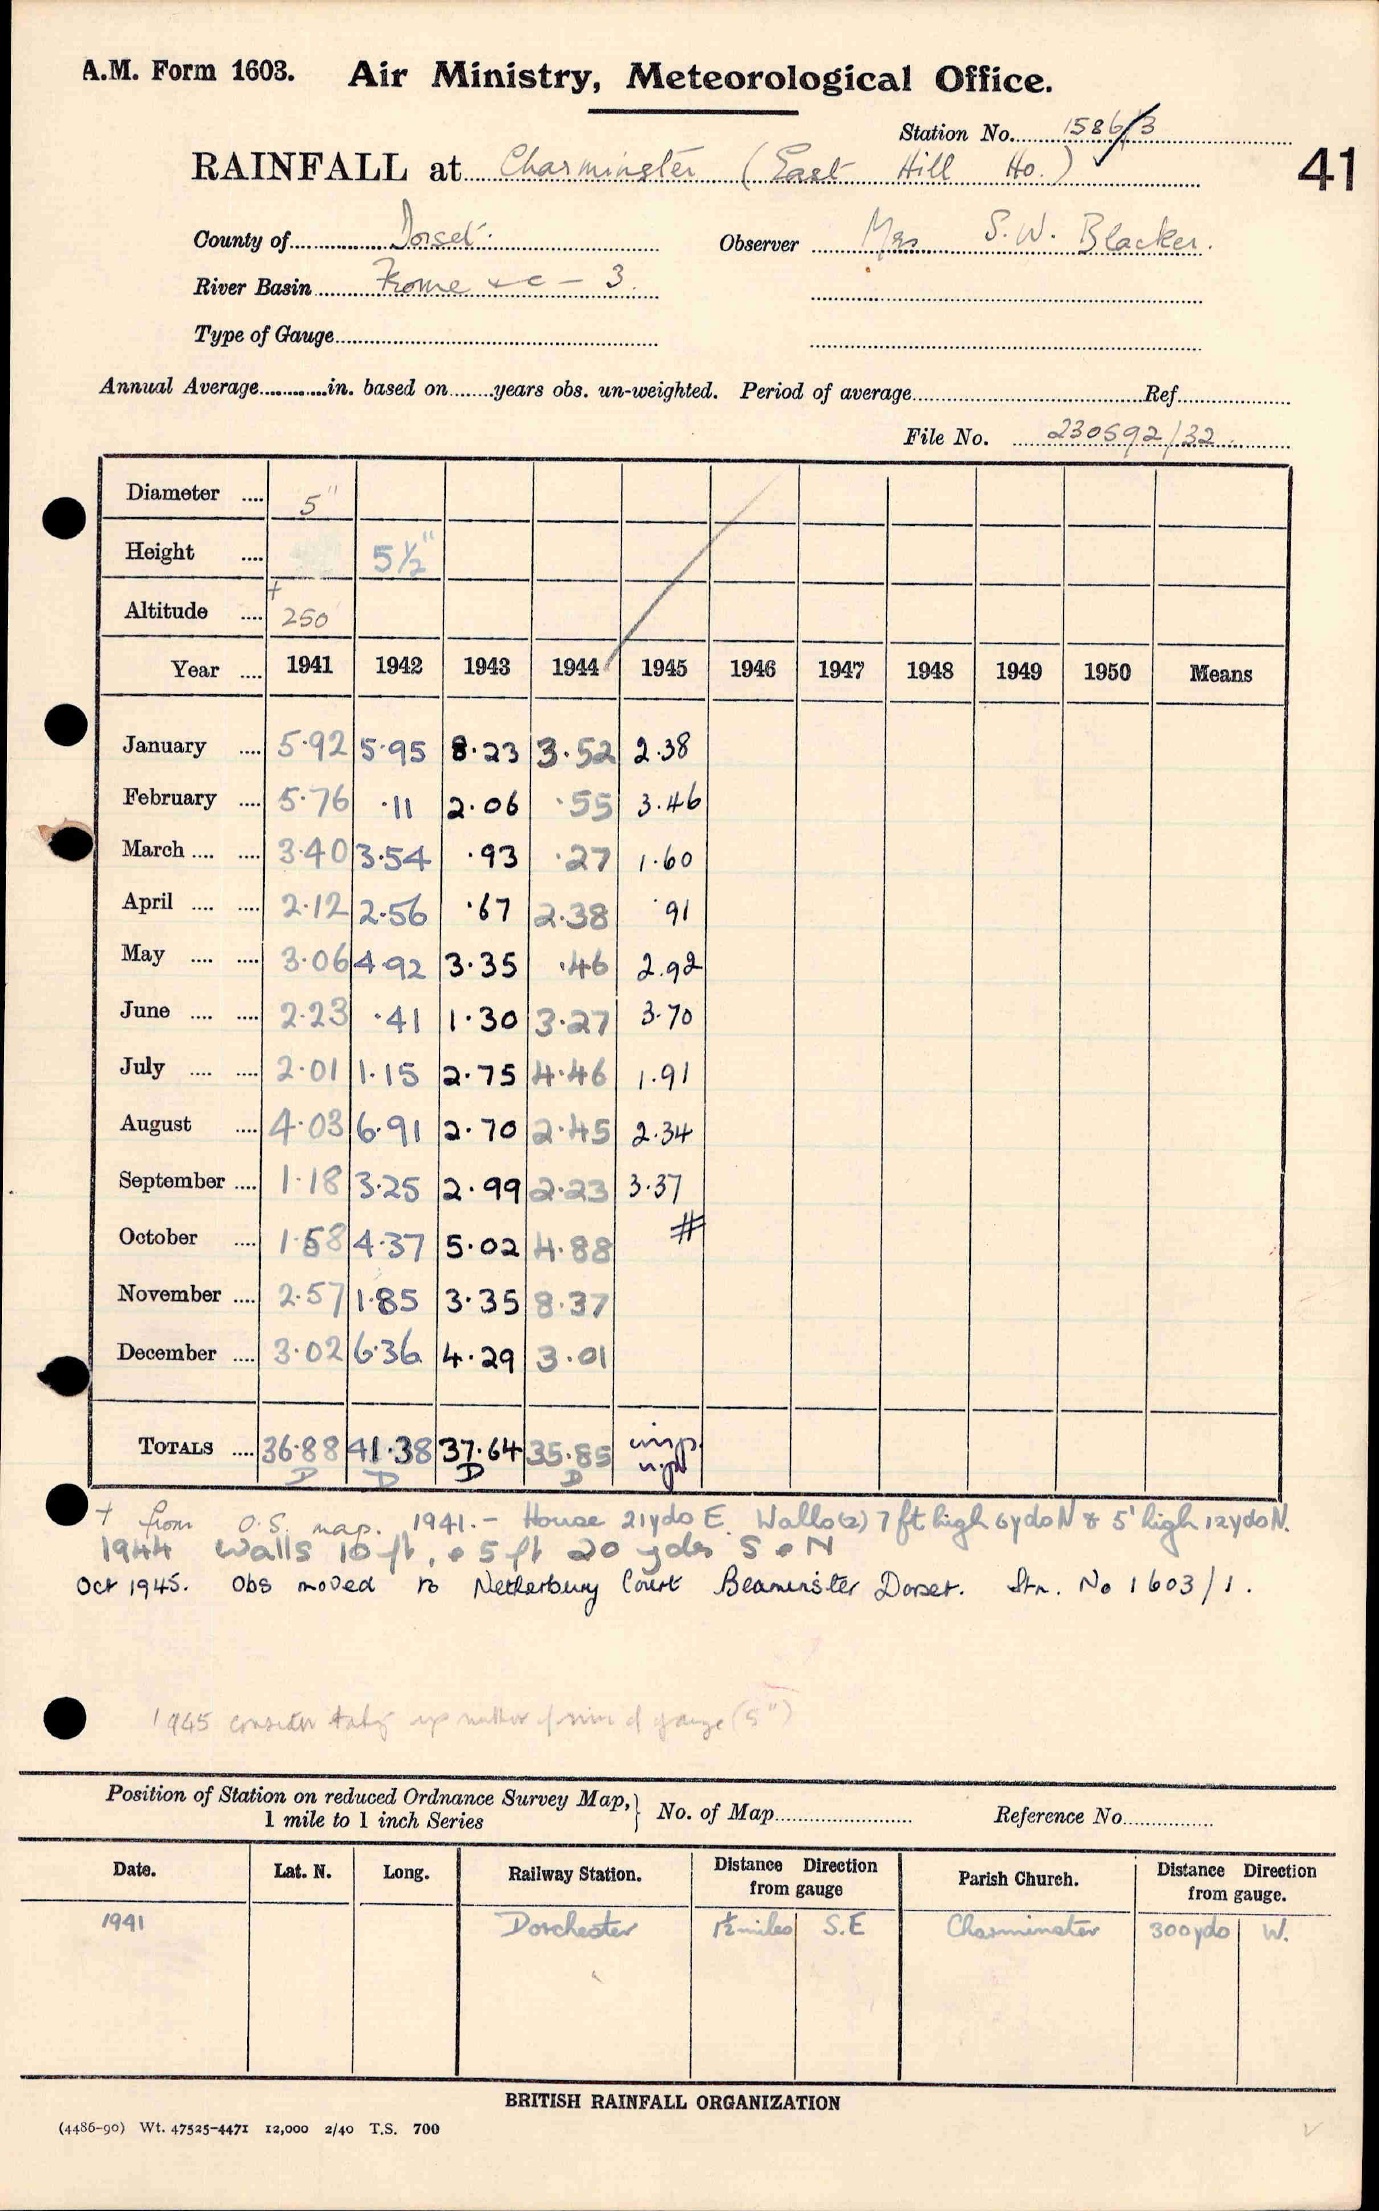 A.M. Form 1603. Air Ministry, Meteorological Office.
Station No. 1586/3
RAINFALL at Charminster (East Hill Ho.)
41
County of Dorset. Observer Mrs S.W. Blacker.
River Basin Frome &c – 3.
Type of Gauge
Annual Average in. based on years obs. un-weighted. Period of average Ref.
File No. 230592/32
Diameter .... 5"
Height .... 5½"
Altitude .... † 250
Year .... 1941 1942 1943 1944 1945 1946 1947 1948 1949 1950 Means
January .... 5·92 5·95 8·23 3·52 2·38
February .... 5·76 ·11 2·06 ·55 3·46
March .... .... 3·40 3·54 ·93 ·27 1·60
April .... .... 2·12 2·56 ·67 2·38 ·91
May .... .... 3·06 4·92 3·35 ·46 2.92
June .... .... 2·23 ·41 1·30 3·27 3·70
July .... .... 2·01 1·15 2·75 4·46 1·91
August .... 4·03 6·91 2·70 2·45 2·34
September .... 1·18 3·25 2·99 2·23 3·37
October .... 1·58 4·37 5·02 4·88 #
November .... 2·57 1·85 3·35 8·37
December .... 3·02 6·36 4·29 3·01
TOTALS .... 36·88 41·38 37·64 35·85 imp.
D D D D n.p.
† from O.S. map. 1941.– House 21yds E. Walls(2) 7ft high 6yds N & 5' high 12yds N.
1944 Walls 10ft, & 5ft 20 yds S & N
Oct 1945. Obs moved to Netherbury Court Beaminster Dorset. Stn. No 1603/1.
1945 consider taking up matter of rim of gauge (5")
Position of Station on reduced Ordnance Survey Map,} No. of Map Reference No.
1 mile to 1 inch Series
Date. Lat. N. Long. Railway Station. Distance Direction from gauge Parish Church. Distance Direction from gauge.
1941 Dorchester 1½ miles S.E Charminster 300yds W.
BRITISH RAINFALL ORGANIZATION
(4486-90) Wt. 47525-4471 12,000 2/40 T.S. 700